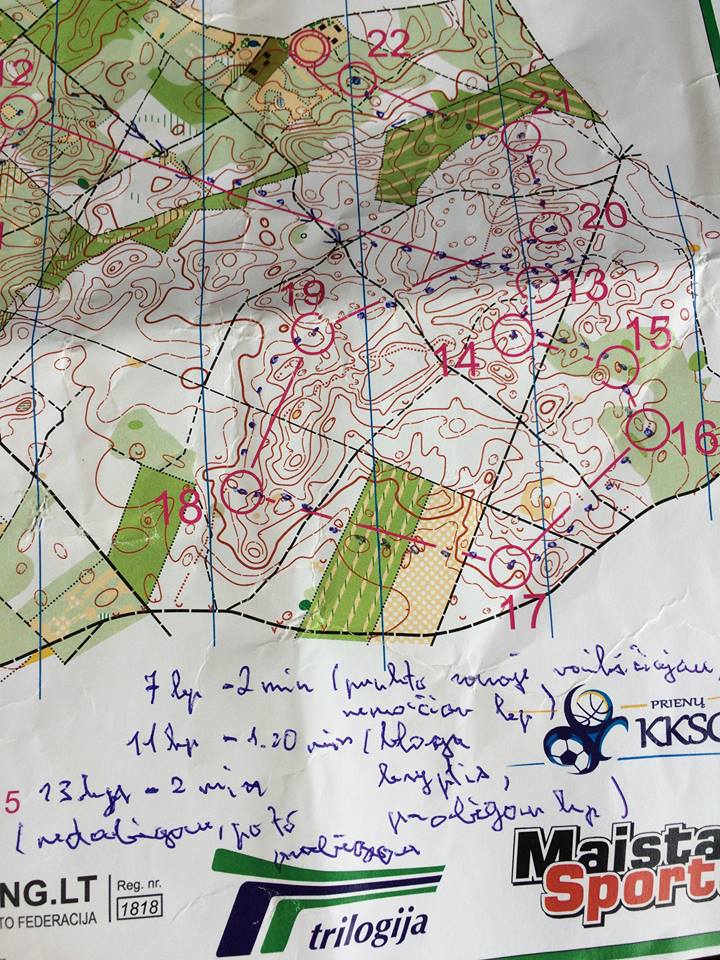 22
12
21
20
19
13
14
15
16
18
17
7 kp - 2 min (punkto zonoje vaikščiojau,
nemačiau kp)
11 kp - 1.20 min (bloga
kryptis,
5
13 kp - 2 min
prabėgau kp)
(nedabėgau, po to
prabėgau
PRIENŲ
KKSC
NG.LT
TO FEDERACIJA
Reg. nr.
1818
trilogija
Maista
Sport